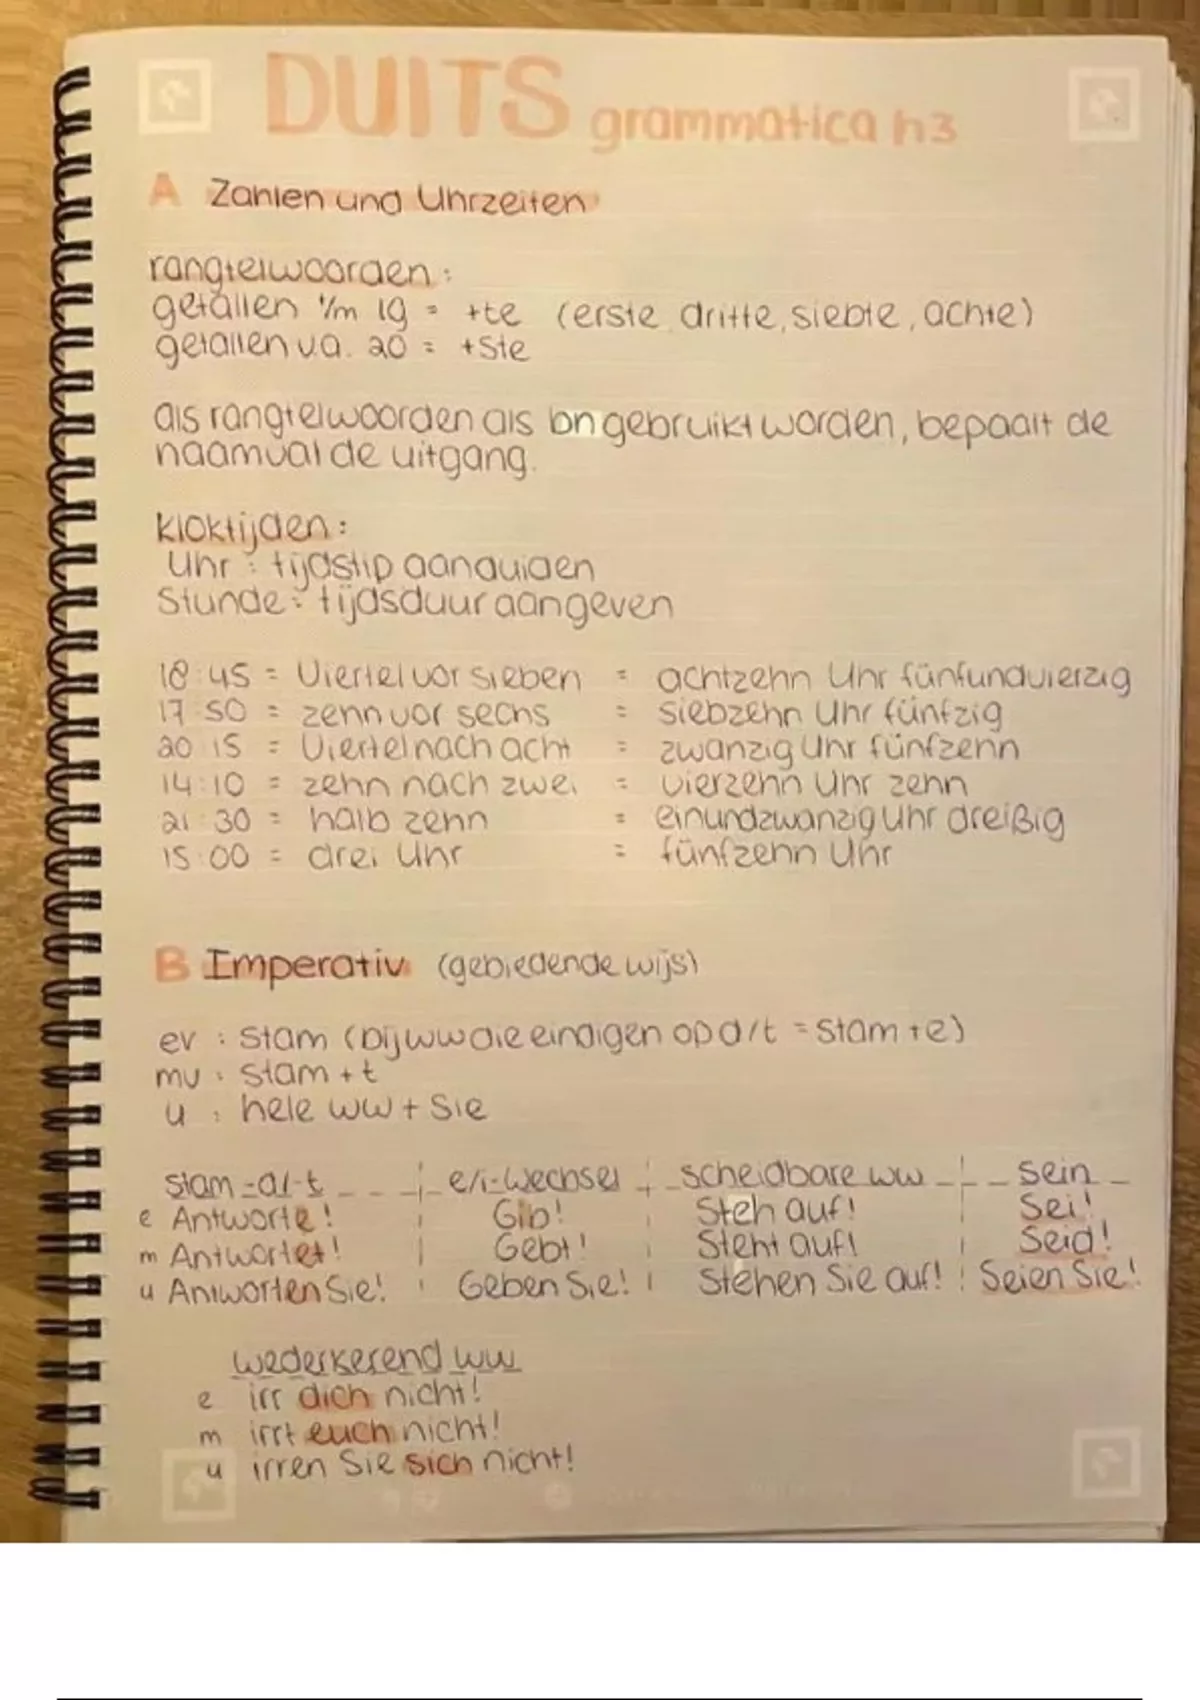 DUITS grammatica h3
A Zahlen und Uhrzeiten
rangtelwoorden:
getallen t/m 19 = +te (erste, dritte, siebte, achte)
getallen v.a. 20 = +ste
als rangtelwoorden als bn gebruikt worden, bepaalt de
naamval de uitgang.
kloktijden:
Uhr = tijdstip aanduiden
Stunde = tijdsduur aangeven
18:45 = Viertel vor sieben = achtzehn Uhr fünfundvierzig
17:50 = zehn vor sechs = siebzehn Uhr fünfzig
20:15 = Viertel nach acht = zwanzig Uhr fünfzehn
14:10 = zehn nach zwei = vierzehn Uhr zehn
21:30 = halb zehn = einundzwanzig Uhr dreißig
15:00 = drei Uhr = fünfzehn Uhr
B Imperativ (gebiedende wijs)
ev : stam (bij ww die eindigen op d/t = stam+e)
mv : stam + t
u : hele ww + Sie
stam -d/-t e/i-Wechsel scheidbare ww sein
e Antworte! Gib! Steh auf! Sei!
m Antwortet! Gebt! Steht auf! Seid!
u Antworten Sie! Geben Sie! Stehen Sie auf! Seien Sie!
wederkerend ww
e irr dich nicht!
m irrt euch nicht!
u irren Sie sich nicht!